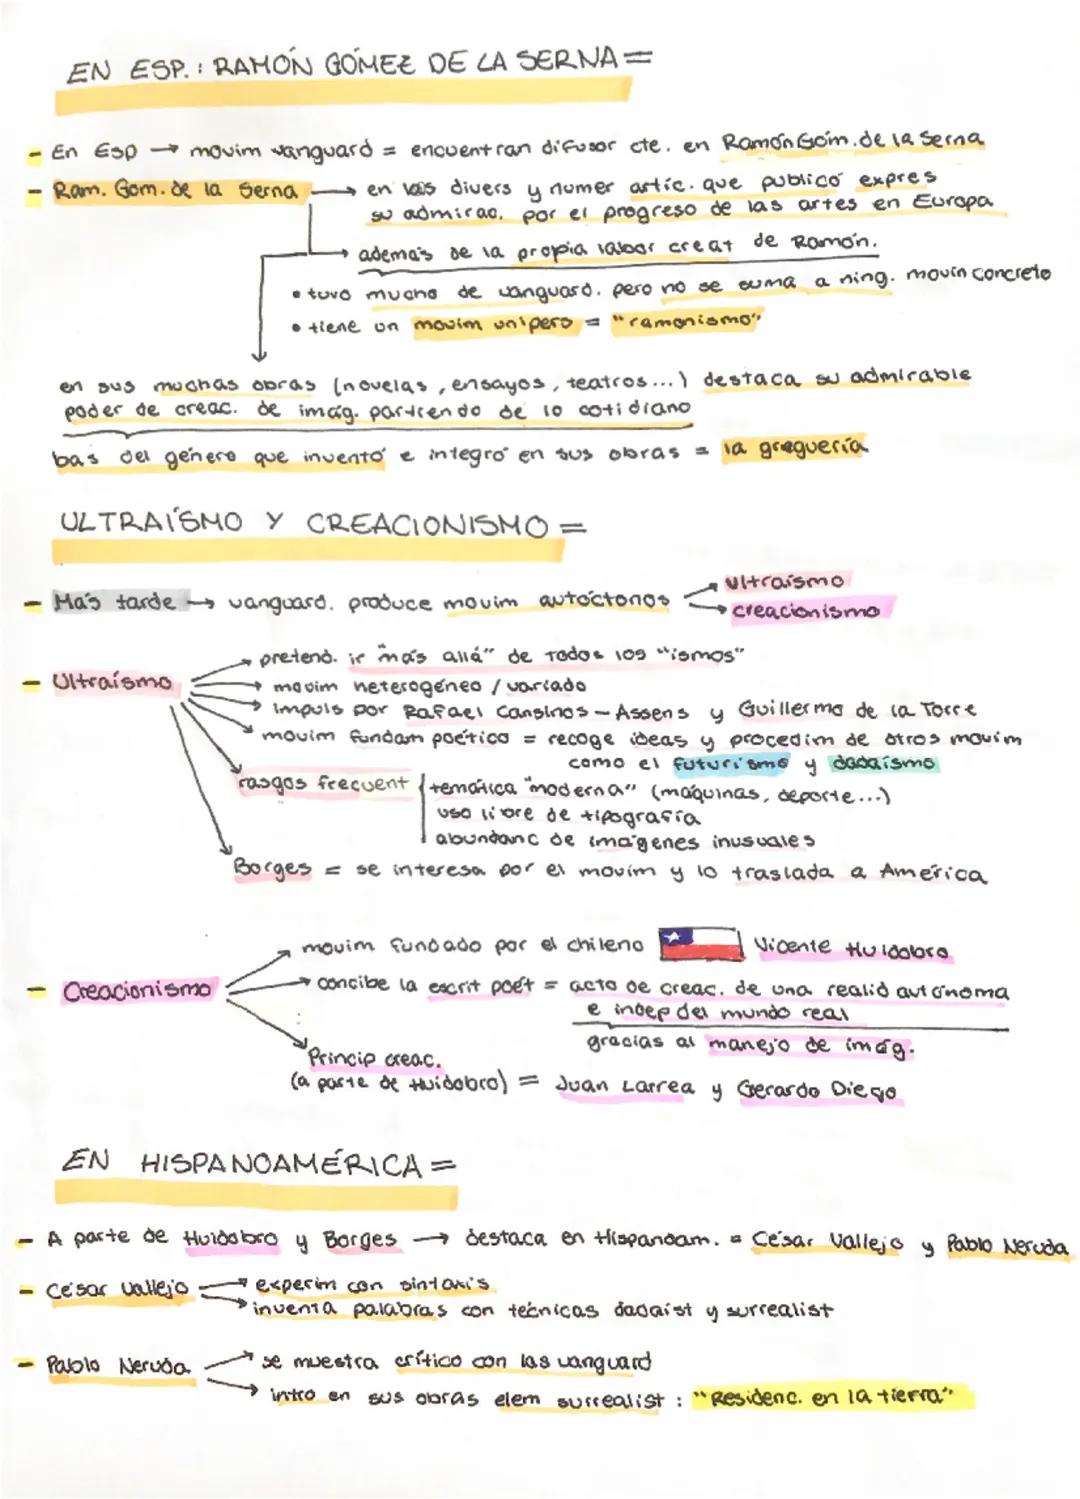 EN ESP.: RAMÓN GÓMEZ DE LA SERNA =
- En Esp → movim vanguard = encuentran difusor cte. en Ramón Góm. de la Serna
- Ram. Gom. de la Serna → en las divers y numer artíc. que publicó expres
su admirac. por el progreso de las artes en Europa
→ además de la propia labor creat de Ramón.
• tuvo mucho de vanguard. pero no se suma a ning. movim concreto
• tiene un movim unipers = "ramonismo"
en sus muchas obras (novelas, ensayos, teatros...) destaca su admirable
poder de creac. de imág. partiendo de lo cotidiano
bas del género que inventó e integró en sus obras = la greguería
ULTRAÍSMO Y CREACIONISMO =
- Más tarde → vanguard. produce movim autóctonos
→ Ultraísmo
→ creacionismo
- Ultraísmo → pretend. ir "más allá" de Todos los "ismos"
→ movim heterogéneo / variado
→ impuls por Rafael Cansinos - Assens y Guillermo de la Torre
→ movim fundam poético = recoge ideas y procedim de otros movim
como el futurismo y dadaísmo
rasgos frecuent { temática "moderna" (máquinas, deporte...)
uso libre de tipografía
abundanc de imágenes inusuales
Borges = se interesa por el movim y lo traslada a América
- Creacionismo → movim fundado por el chileno Vicente Huidobro
→ concibe la escrit poét = acto de creac. de una realid autónoma
e indep del mundo real
gracias al manejo de imág.
Princip creac.
(a parte de Huidobro) = Juan Larrea y Gerardo Diego
EN HISPANOAMÉRICA =
- A parte de Huidobro y Borges → destaca en Hispanoam. = César Vallejo y Pablo Neruda
- César Vallejo → experim con sintaxis
→ inventa palabras con técnicas dadaist y surrealist
- Pablo Neruda → se muestra crítico con las vanguard
→ intro en sus obras elem surrealist : "Residenc. en la tierra"